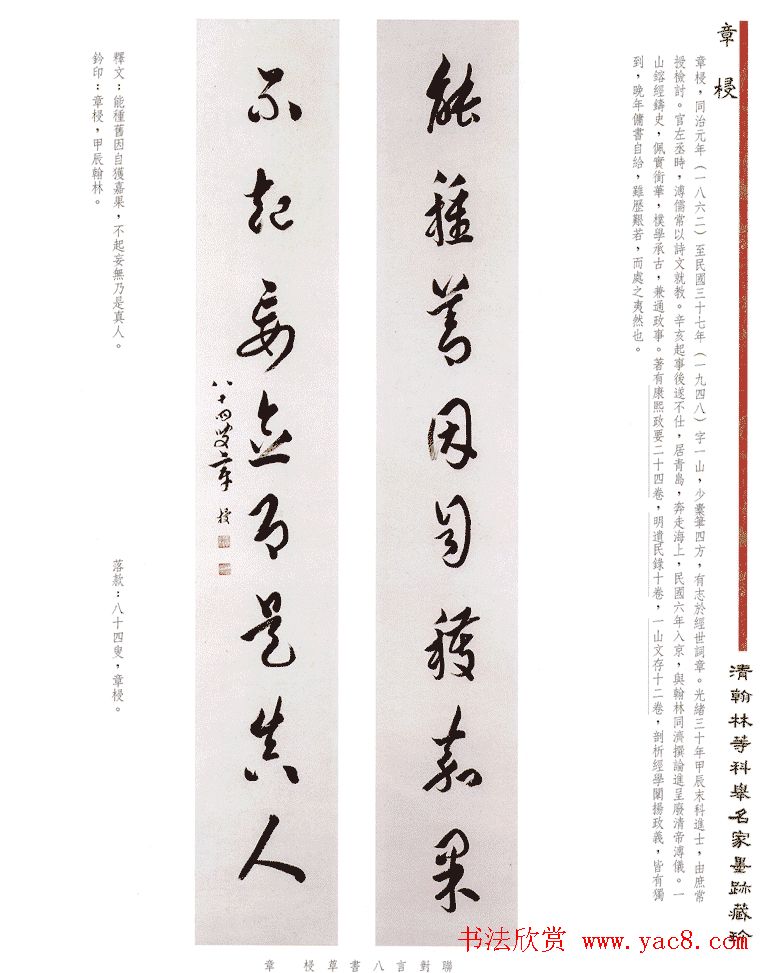 章梫
章梫，同治元年（一八六二）至民國三十七年（一九四八）字一山，少橐筆四方，有志於經世詞章。光緒三十年甲辰末科進士，由庶常
授檢討。官左丞時，溥儒常以詩文就教。辛亥起事後遂不仕，居青島，奔走海上，民國六年入京，與翰林同濟撰論進呈廢清帝溥儀。一
山鎔經鑄史，佩實銜華，樸學承古，兼通政事。著有康熙政要二十四卷，明遺民錄十卷，一山文存十二卷，剖析經學闡揚政義，皆有獨
到，晚年傭書自給，雖歷艱若，而處之夷然也。
清翰林等科舉名家墨跡藏珍
能種舊因自獲嘉果
不起妄念乃是真人
八十四叟章梫
釋文：能種舊因自獲嘉果，不起妄無乃是真人。
落款：八十四叟，章梫。
鈐印：章梫，甲辰翰林。
章梫草書八言對聯
书法欣赏 www.yac8.com